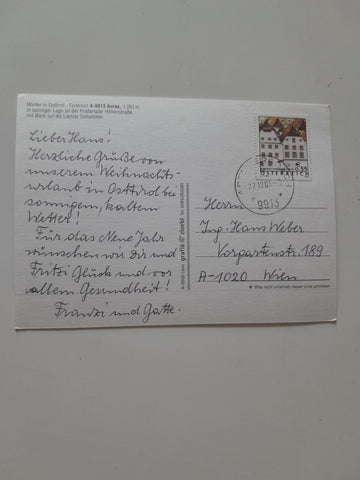 Winter in Osttirol - Ferienort A-9913 Abfaltersbach
in sonniger Lage an der Pustertaler Höhenstraße
mit Blick auf die Lienzer Dolomiten
Lieber Hans!
Herzliche Grüße von
unserem Weihnachts-
urlaub in Osttirol bei
sonnigem, kaltem
Wetter!
Für das Neue Jahr
wünschen wir Dir und
Fritzi Glück und vor
allem Gesundheit!
Franzi und Gatte.
grafik © zloebl
ÖSTERREICH
9913
Herrn
Ing. Hans Weber
Vorgartenstr. 189
A-1020 Wien
Bitte nicht unterhalb dieser Linie schreiben